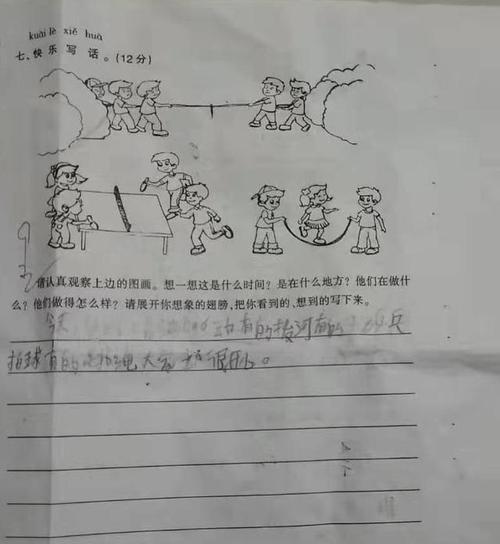 kuài lè xiě huà
七、快乐写话。(12分)
请认真观察上边的图画。想一想这是什么时间?是在什么地方?他们在做什
么?他们做得怎么样?请展开你想象的翅膀,把你看到的、想到的写下来。
今天 动有的拔河有的 乒
拍球有的 绳大家 很开心。